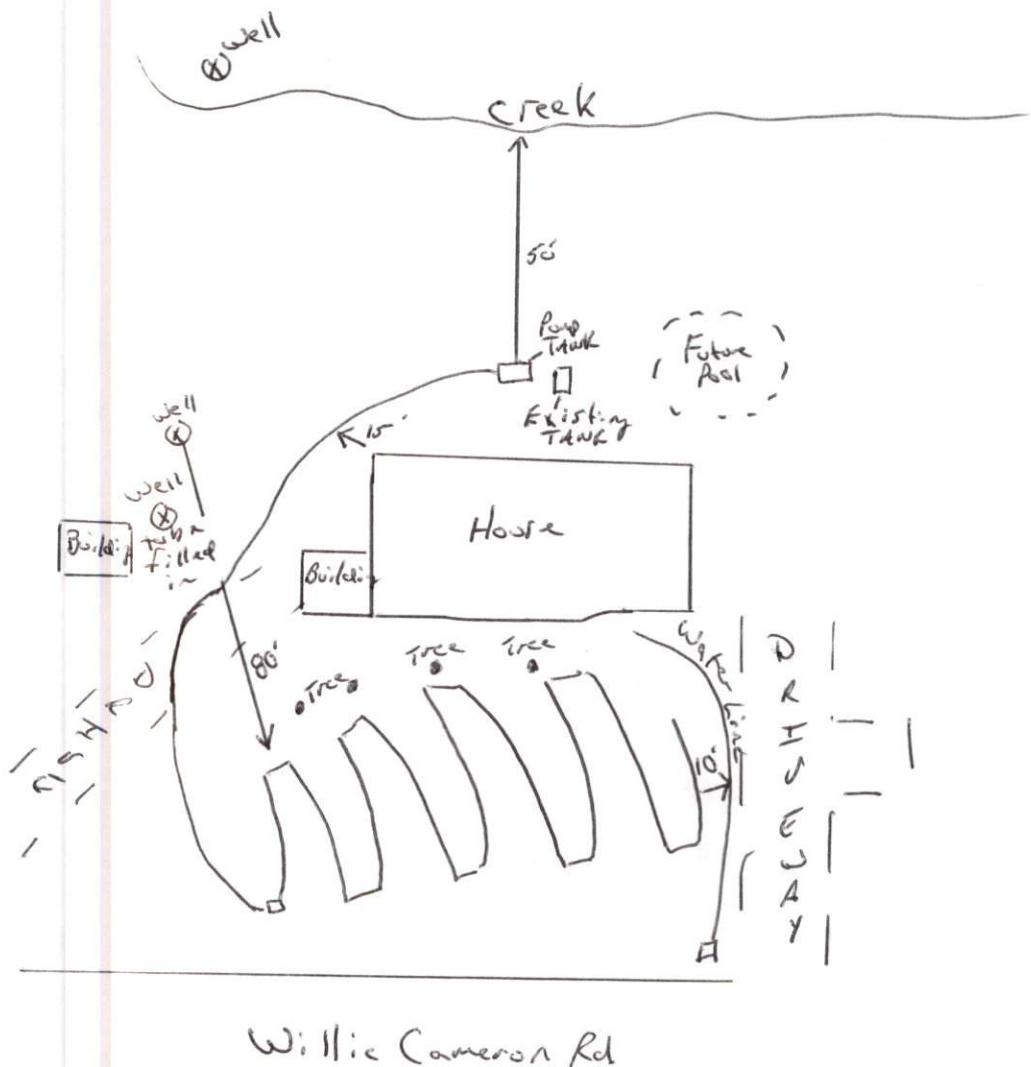 Well
Creek
50'
Pump
TANK
Future
Pool
Existing
TANK
15'
Well
Well
to be
filled
in
Building
House
Building
80'
Tree
Tree
Tree
Water Line
10'
DRIVEWAY
Willie Cameron Rd